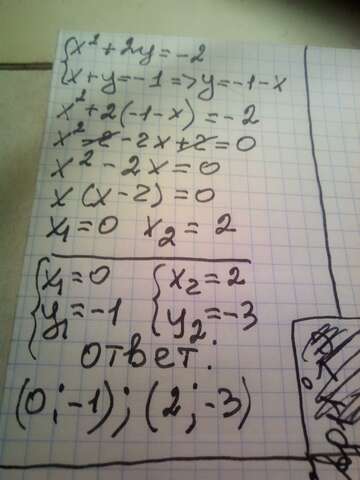 {x² + 2y = -2
{x + y = -1 => y = -1 - x
x² + 2(-1 - x) = -2
x² - 2 - 2x + 2 = 0
x² - 2x = 0
x(x - 2) = 0
x₁ = 0 x₂ = 2
{x₁ = 0 {x₂ = 2
{y₁ = -1 {y₂ = -3
ответ:
(0; -1); (2; -3)